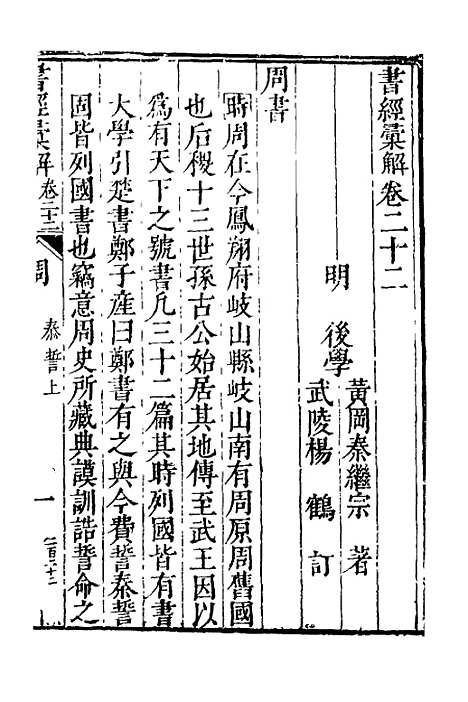 書經彙解卷二十二
明 後學
黃岡秦繼宗 著
武陵楊 鶴 訂
周書
時周在今鳳翔府岐山縣岐山南有周原周舊國
也后稷十三世孫古公始居其地傳至武王因以
爲有天下之號書凡三十二篇其時列國皆有書
大學引楚書鄭子產曰鄭書有之與今費誓秦誓
固皆列國書也竊意周史所藏典謨訓誥誓命之
書經彙解 卷二十二 周 泰誓上 一